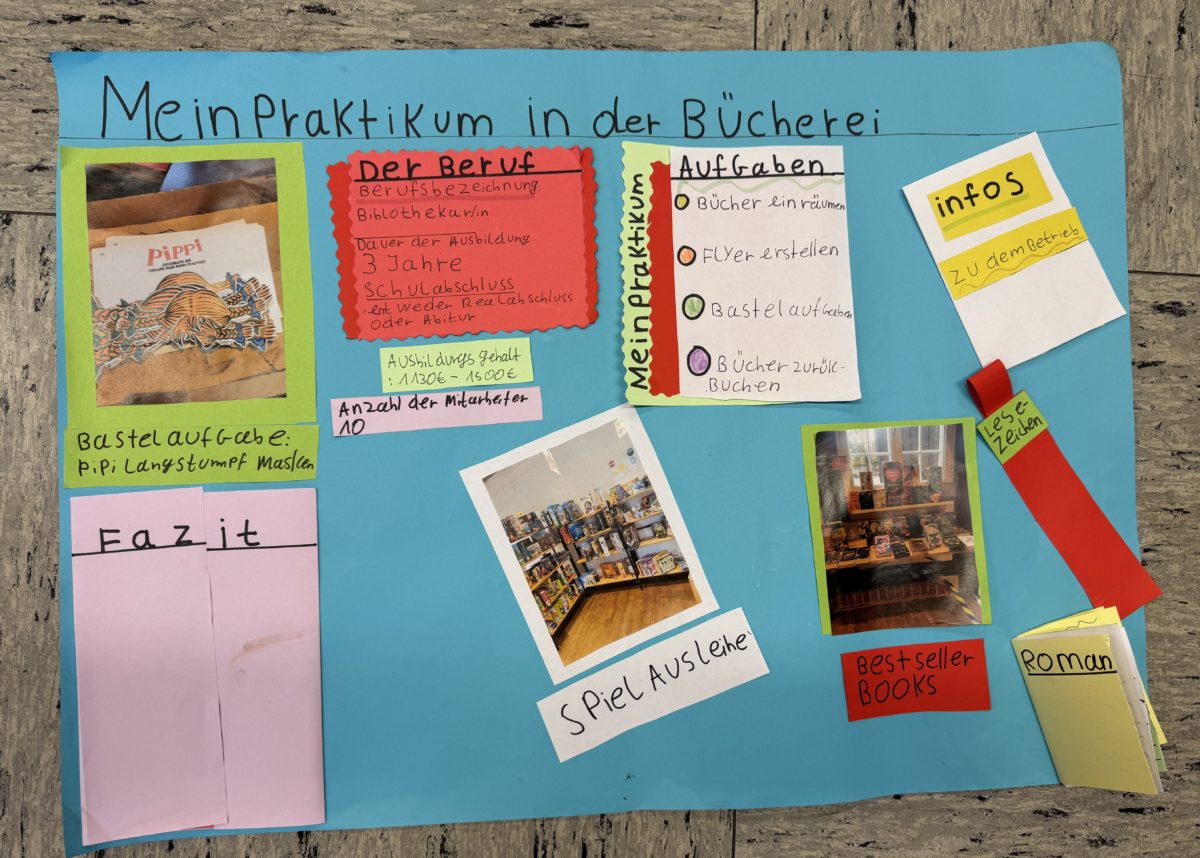 Mein Praktikum in der Bücherei
PiPPi
Bastelaufgabe:
PiPi Langstumpf Masken
Fazit
Der Beruf
Berufsbezeichnung
Biblothekar/in
Dauer der Ausbildung
3 Jahre
Schulabschluss
entweder Realabschluss
oder Abitur
Ausbildungsgehalt
: 1130€ - 1500€
Anzahl der Mitarbeiter
10
Mein Praktikum
Aufgaben
Bücher einräumen
Flyer erstellen
Bastelaufgaben
Bücher zurük-
Buchen
infos
zu dem Betrieb
Lese-
zeichen
Spiel Ausleihe
Bestseller
BOOKS
Roman